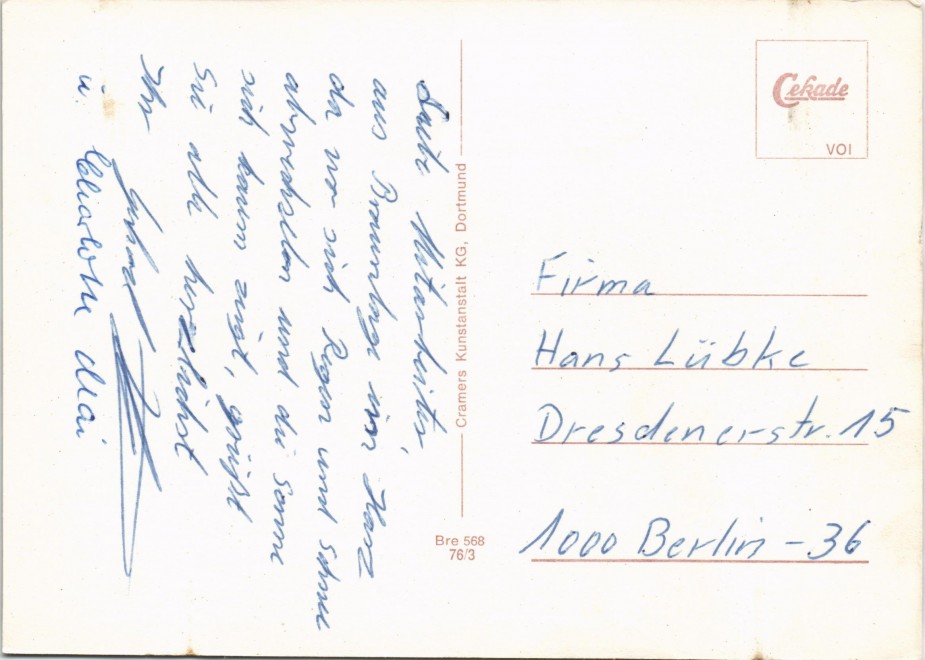 Liebe Mitarbeiter,
aus Braunlage im Harz
da wo sich Regen und Schnee
abwechseln und die Sonne
sich kaum zeigt, grüßt
Sie alle herzlichst
Ihr Gerhard
u. Charlotte Mai
Cramers Kunstanstalt KG, Dortmund
Bre 568
76/3
Cekade
VOI
Firma
Hans Lübke
Dresdenerstr. 15
1000 Berlin - 36